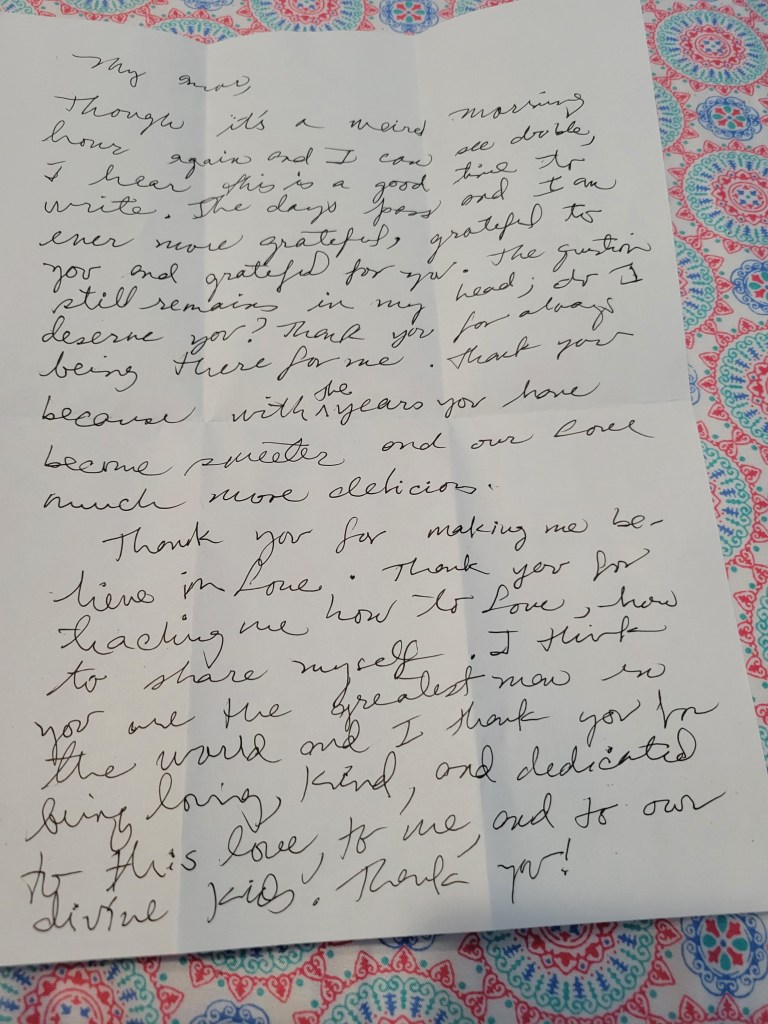 My amor,
Though it's a weird morning
hour again and I can see double,
I hear this is a good time to
write. The days pass and I am
ever more grateful, grateful to
you and grateful for you. The question
still remains in my head; do I
deserve you? Thank you for always
being there for me. Thank you
because with the years you have
become sweeter and our love
much more delicios.
Thank you for making me be-
lieve in Love. Thank you for
teaching me how to Love, how
to share myself. I think
you are the greatest man in
the world and I thank you for
being loving, kind, and dedicated
to this love, to me, and to our
divine kids. Thank you!